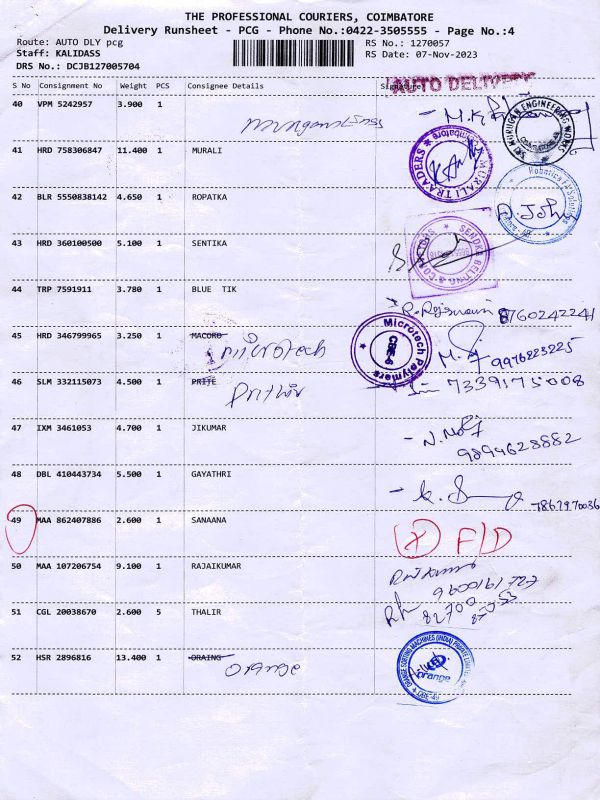 THE PROFESSIONAL COURIERS, COIMBATORE
Delivery Runsheet - PCG - Phone No.:0422-3505555 - Page No.:4
Route: AUTO DLY pcg RS No.: 1270057
Staff: KALIDASS RS Date: 07-Nov-2023
DRS No.: DCJB127005704
AUTO DELIVERY
S No Consignment No Weight PCS Consignee Details Signature
40 VPM 5242957 3.900 1
SRI MURUGAN ENGINEERING WORKS
COIMBATORE
41 HRD 758306847 11.400 1 MURALI
MURALI TRAADERS
Coimbatore
42 BLR 5550838142 4.650 1 ROPATKA
A. John
43 HRD 360100500 5.100 1 SENTIKA
44 TRP 7591911 3.780 1 BLUE TIK
8760242241
45 HRD 346799965 3.250 1 MACORO
microtech
Microtech Polymers
CBE-6
9976223225
46 SLM 332115073 4.500 1 PRITE
Prithvi
7339175008
47 IXM 3461053 4.700 1 JIKUMAR
9894628882
48 DBL 410443734 5.500 1 GAYATHRI
7867970036
49 MAA 862407886 2.600 1 SANAANA
F/D
50 MAA 107206754 9.100 1 RAJAIKUMAR
51 CGL 20038670 2.600 5 THALIR
52 HSR 2896816 13.400 1 ORAING
Orange
ORANGE SORTING MACHINES (INDIA) PRIVATE LIMITED
orange
CBE-49